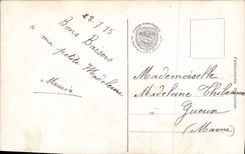 23.7.15
Bons Baisers
à ma petite Madeleine
Mademoiselle
Madeleine
Gueux
(Marne)